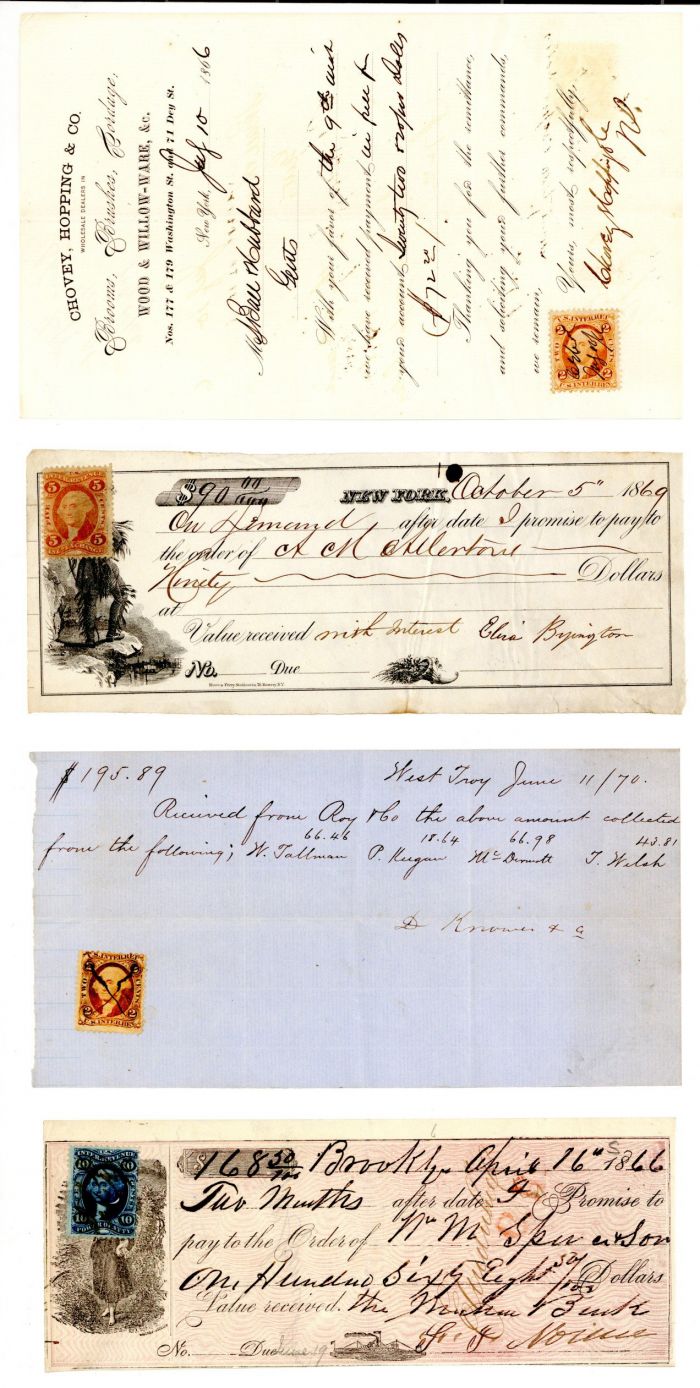 CHOVEY, HOPPING & CO.
WHOLESALE DEALERS IN
Brooms, Brushes, Cordage,
WOOD & WILLOW-WARE, &c.
Nos. 177 & 179 Washington St. and 71 Dey St.
New York, July 10 1866
Hubbard
Gents
With your favor of the 9th inst
we have received payment in full of
your account Seventy two Dolls
($72
Thanking you for the remittance,
and soliciting your further commands,
we remain,
Yours, most respectfully,
Chovey Hopping & Co
U.S. INTER. REV.
TWO CENTS
2 2
$90 00/100 NEW YORK, October 5" 1869
On Demand after date I promise to pay to
the order of A M Allerton
Ninety Dollars
at
Value received with Interest Elisa Byington
No. Due
5 5
INTER. REVENUE
FIVE CENTS
INL. EXCHANGE
$195.89 West Troy June 11/70.
Received from Roy & Co the above amount collected
66.46 18.64 66.98 43.81
from the following; W. Tallman P. Keegan McDermott T. Welsh
D Knower & Co
U.S. INTER. REV.
TWO CENTS
2 2
U.S. INTER. REV.
168 50/100 Brooklyn April 16th 1866
Two Months after date I Promise to
pay to the Order of Wm M & Son
One Hundred Sixty Eight 50/100 Dollars
Value received. the Bank
No. Due June 19
10 10
INTER. REVENUE
POWER OF ATTY